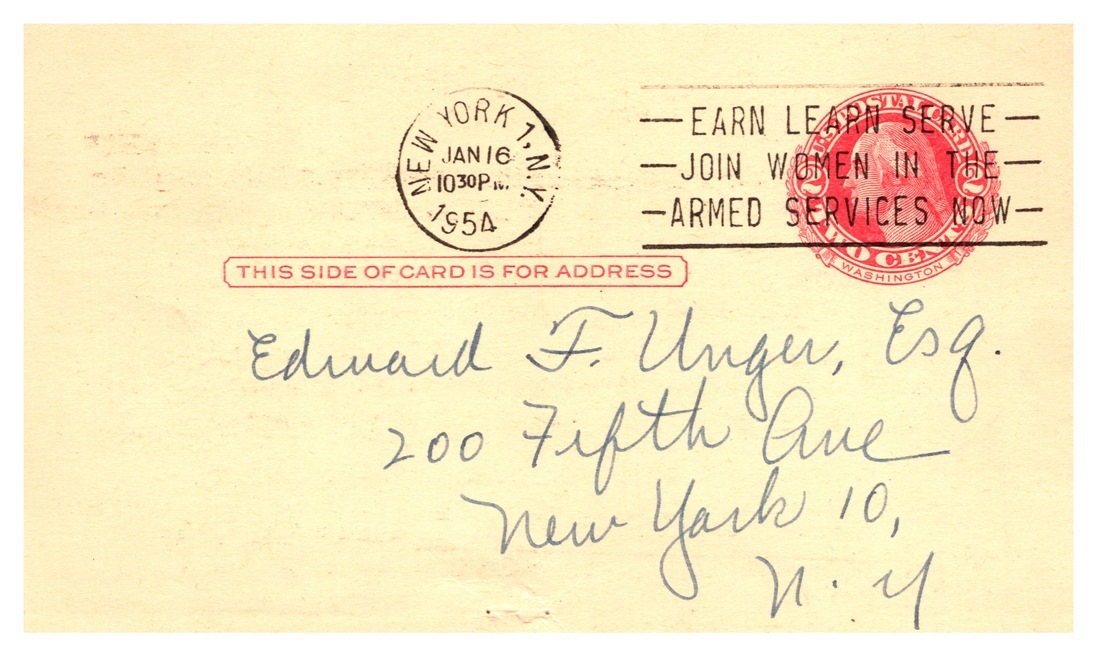 NEW YORK 1, N.Y.
JAN 16
10 30 PM
1954
EARN LEARN SERVE
JOIN WOMEN IN THE
ARMED SERVICES NOW
U.S. POSTAL CARD
2 2
TWO CENTS
WASHINGTON
THIS SIDE OF CARD IS FOR ADDRESS
Edward F. Unger, Esq.
200 Fifth Ave
New York 10,
N. Y